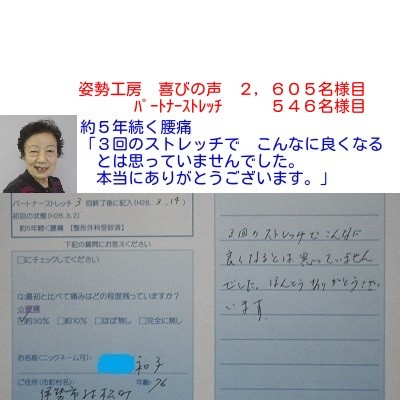 姿勢工房　喜びの声　２，６０５名様目
ﾊﾟｰﾄﾅｰｽﾄﾚｯﾁ　５４６名様目
約５年続く腰痛
「３回のストレッチで　こんなに良くなる
とは思っていませんでした。
本当にありがとうございます。」
パートナーストレッチ 3 回終了後に記入(H28. 3. 14)
初回の状態(H28.3.2)
約5年続く腰痛　【整形外科受診済】
下記の質問にお答えください
□にチェックしてください
Q:最初と比べて痛みはどの程度残っていますか?
☆腰痛
☑約30%　□約10%　□ほぼ無し　□完全に無し
お名前(ニックネーム可): 和子
ご住所(市町村名): 伊勢市 年齢: 76
3回のストレッチでこんなに
良くなるとは思っていません
でした。ほんとうにありがとうござ
います。